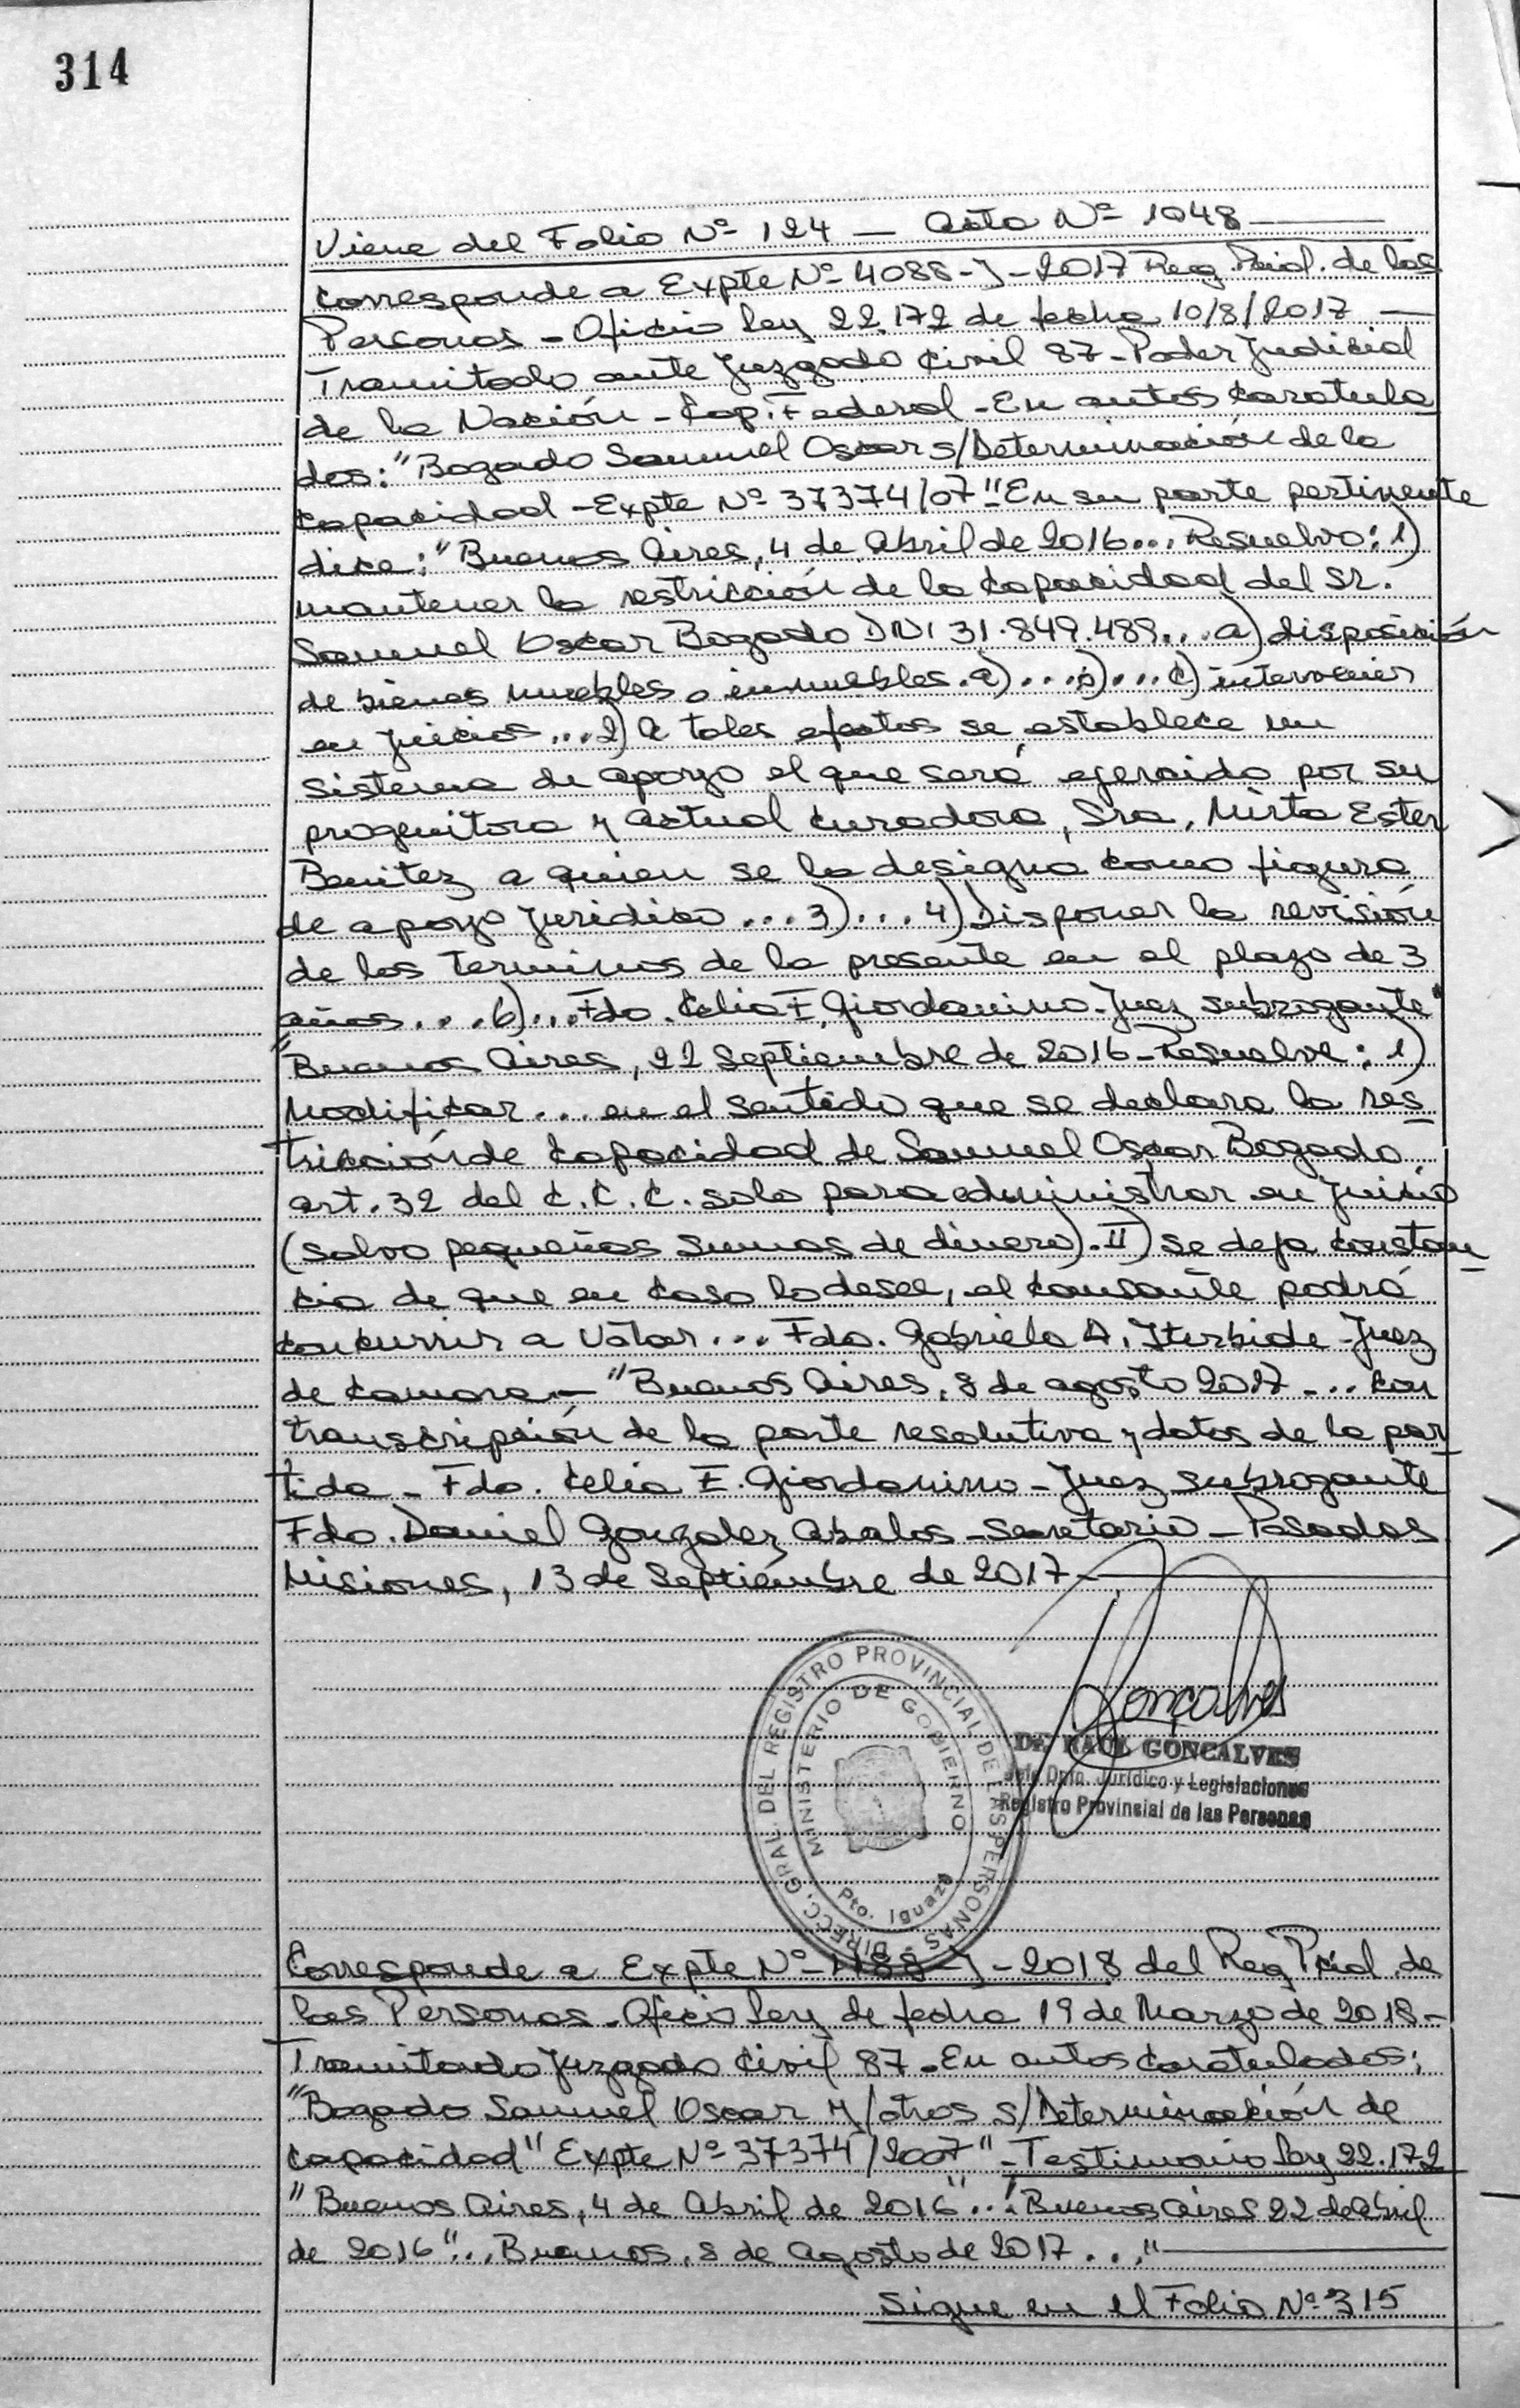 314
Viene del Folio Nº 124 — Acta Nº 1048
Corresponde a Expte Nº 4088-J-2017 Reg. Pcial. de las
Personas - Oficio Ley 22.172 de fecha 10/8/2017 —
Tramitado ante Juzgado Civil 87 - Poder Judicial
de la Nación - Cap. Federal - En autos caratula
dos: "Bogado Samuel Oscar s/Determinación de la
Capacidad - Expte Nº 37374/07" En su parte pertinente
dice: "Buenos Aires, 4 de Abril de 2016... Resuelvo: 1)
mantener la restricción de la capacidad del Sr.
Samuel Oscar Bogado DNI 31.849.489... a) disposición
de bienes muebles o inmuebles. a)... b)... c) intervenir
en juicios... 2) A tales efectos se establece un
sistema de apoyo el que será ejercido por su
progenitora y actual curadora, Sra, Mirta Ester
Benitez a quien se la designa como figura
de apoyo jurídico... 3)... 4) Disponer la revisión
de los terminos de la presente en el plazo de 3
años... 6)... Fdo. Celia E. Giordanino - Juez subrogante"
"Buenos Aires, 22 Septiembre de 2016 - Resuelve: 1)
Modificar... en el sentido que se declara la res
tricción de capacidad de Samuel Oscar Bogado,
art. 32 del C.C.C. solo para administrar en juicio
(salvo pequeñas sumas de dinero). II) se deja constan
cia de que en caso lo desee, el causante podrá
concurrir a votar... Fdo. Gabriela A. Iturbide - Juez
de Camara - "Buenos Aires, 8 de agosto 2017 ... con
transcripción de la parte resolutiva y datos de la par
tida - Fdo. Celia E. Giordanino - Juez subrogante
Fdo. Daniel Gonzalez Abalos - Secretario - Posadas
Misiones, 13 de Septiembre de 2017 —
Goncalves
DIRECC. GRAL. DEL REGISTRO PROVINCIAL DE LAS PERSONAS
MINISTERIO DE GOBIERNO
Pto. Iguazú
RAUL GONCALVES
Jefe Dpto. Jurídico y Legislaciones
Registro Provincial de las Personas
Corresponde a Expte Nº 1188-J-2018 del Reg Pcial. de
las Personas - Oficio Ley de fecha 19 de Marzo de 2018 -
Tramitado Juzgado Civil 87 - En autos caratulados:
"Bogado Samuel Oscar y/otros s/Determinación de
Capacidad" Expte Nº 37374/2007" - Testimonio Ley 22.172
"Buenos Aires, 4 de Abril de 2016"... "Buenos Aires 22 de Abril
de 2016"... Buenos, 8 de Agosto de 2017..." —
Sigue en el Folio Nº 315